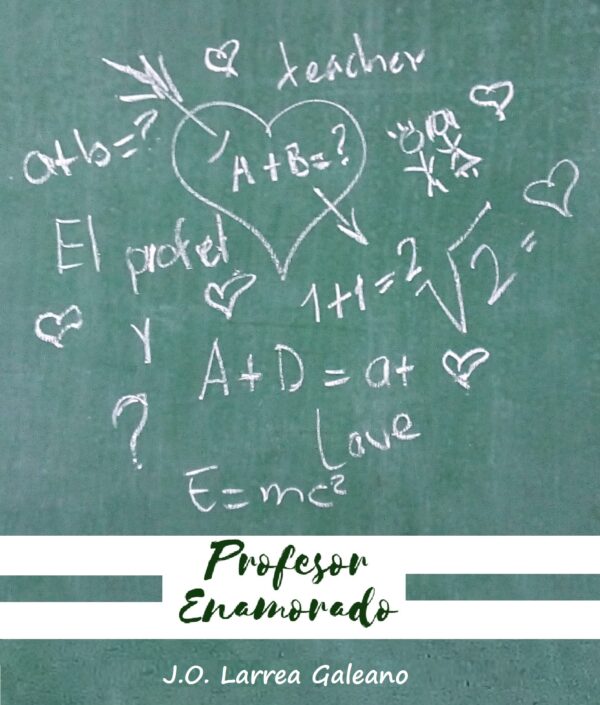 teacher
a+b=?
A+B=?
El profet
1+1=2
√2=
y
A+D=at
?
Love
E=mc²
Profesor
Enamorado
J.O. Larrea Galeano